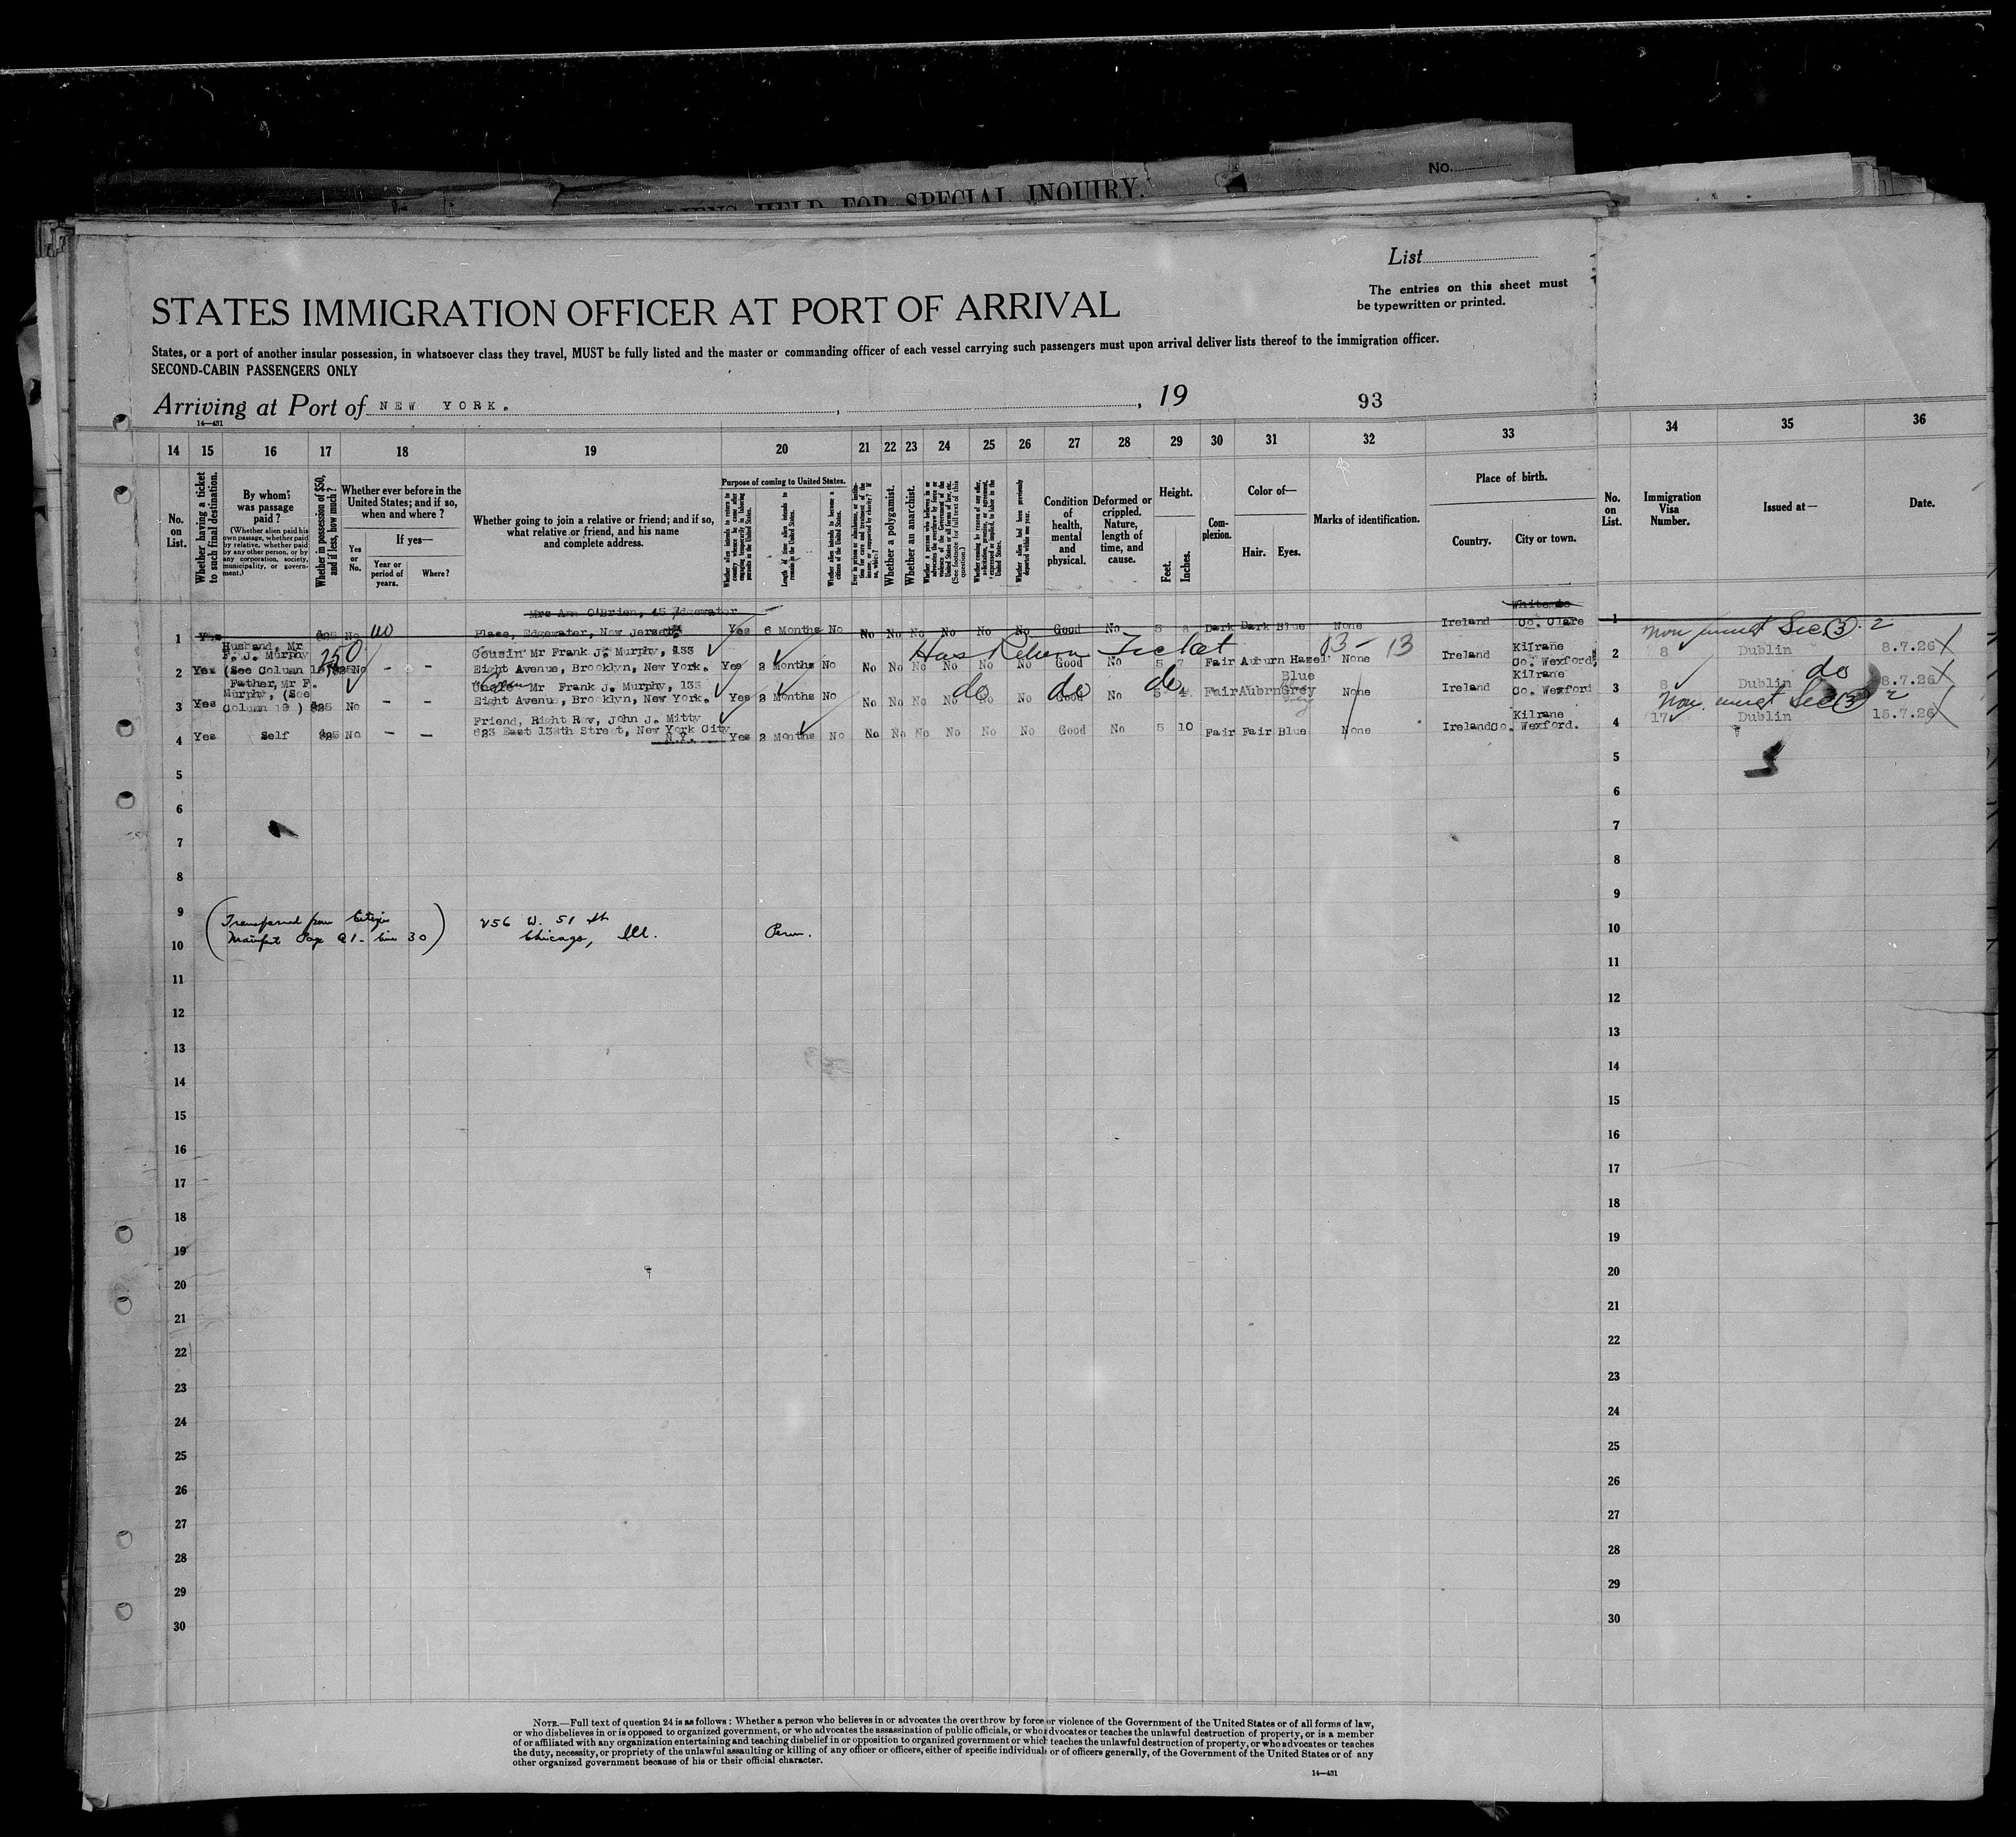 No.
ALIENS HELD FOR SPECIAL INQUIRY.
List
The entries on this sheet must
be typewritten or printed.
STATES IMMIGRATION OFFICER AT PORT OF ARRIVAL
States, or a port of another insular possession, in whatsoever class they travel, MUST be fully listed and the master or commanding officer of each vessel carrying such passengers must upon arrival deliver lists thereof to the immigration officer.
SECOND-CABIN PASSENGERS ONLY
Arriving at Port of NEW YORK. , , 19 93
14—431
14 15 16 17 18 19 20 21 22 23 24 25 26 27 28 29 30 31 32 33 34 35 36
No. on List.
Whether having a ticket to such final destination.
By whom was passage paid?
(Whether alien paid his own passage, whether paid by relative, whether paid by any other person, or by any corporation, society, municipality, or government.)
Whether in possession of $50, and if less, how much?
Whether ever before in the United States; and if so, when and where?
Yes or No.
If yes—
Year or period of years.
Where?
Whether going to join a relative or friend; and if so, what relative or friend, and his name and complete address.
Purpose of coming to United States.
Whether alien intends to return to country whence he came after engaging temporarily in laboring pursuits in the United States.
Length of time alien intends to remain in the United States.
Whether alien intends to become a citizen of the United States.
Whether a polygamist.
Whether an anarchist.
Whether alien had been previously deported within one year.
Condition of health, mental and physical.
Deformed or crippled. Nature, length of time, and cause.
Height.
Feet.
Inches.
Complexion.
Color of—
Hair.
Eyes.
Marks of identification.
Place of birth.
Country.
City or town.
No. on List.
Immigration Visa Number.
Issued at—
Date.
Mrs Ann O'Brien, 45 Edgewater
1 Yes $25 No Place, Edgewater, New Jersey. Yes 6 Months No No No No No No No Good No 5 8 Dark Dark Blue None Ireland Co. Clare 1
Husband, Mr
F. J. Murphy 250 Cousin Mr Frank J. Murphy, 133 Has Return Ticket 13 - 13 Kilrane Non immgt Sec (3) 2
2 Yes (See Column 19) $25 No — — Eight Avenue, Brooklyn, New York. Yes 2 Months No No No No No No No Good No 5 7 Fair Auburn Hazel None Ireland Co. Wexford 2 8 Dublin 8.7.26
Father, Mr F. Uncle Mr Frank J. Murphy, 133 do do do Blue Kilrane do
Murphy, (See
3 Yes Column 19) $25 No — — Eight Avenue, Brooklyn, New York. Yes 2 Months No No No No No No No Good No 5 4 Fair Aubrn Grey None Ireland Co. Wexford 3 8 Dublin 8.7.26
Friend, Right Rev, John J. Mitty Kilrane Non immgt Sec (3) 2
4 Yes Self $25 No — — 823 East 138th Street, New York City Yes 2 Months No No No No No No No Good No 5 10 Fair Fair Blue None Ireland Co. Wexford. 4 17 Dublin 15.7.26
N.Y.
5 5
6 6
7 7
8 8
9 (Transferred from Citizen 256 W. 51 st 9
10 Manifest Page 91 - line 30) Chicago, Ill. Perm. 10
11 11
12 12
13 13
14 14
15 15
16 16
17 17
18 18
19 19
20 20
21 21
22 22
23 23
24 24
25 25
26 26
27 27
28 28
29 29
30 30
NOTE.—Full text of question 24 is as follows: Whether a person who believes in or advocates the overthrow by force or violence of the Government of the United States or of all forms of law,
or who disbelieves in or is opposed to organized government, or who advocates the assassination of public officials, or who advocates or teaches the unlawful destruction of property, or is a member
of or affiliated with any organization entertaining and teaching disbelief in or opposition to organized government or which teaches the unlawful destruction of property, or who advocates or teaches
the duty, necessity, or propriety of the unlawful assaulting or killing of any officer or officers, either of specific individuals or of officers generally, of the Government of the United States or of any
other organized government because of his or their official character.
14—431